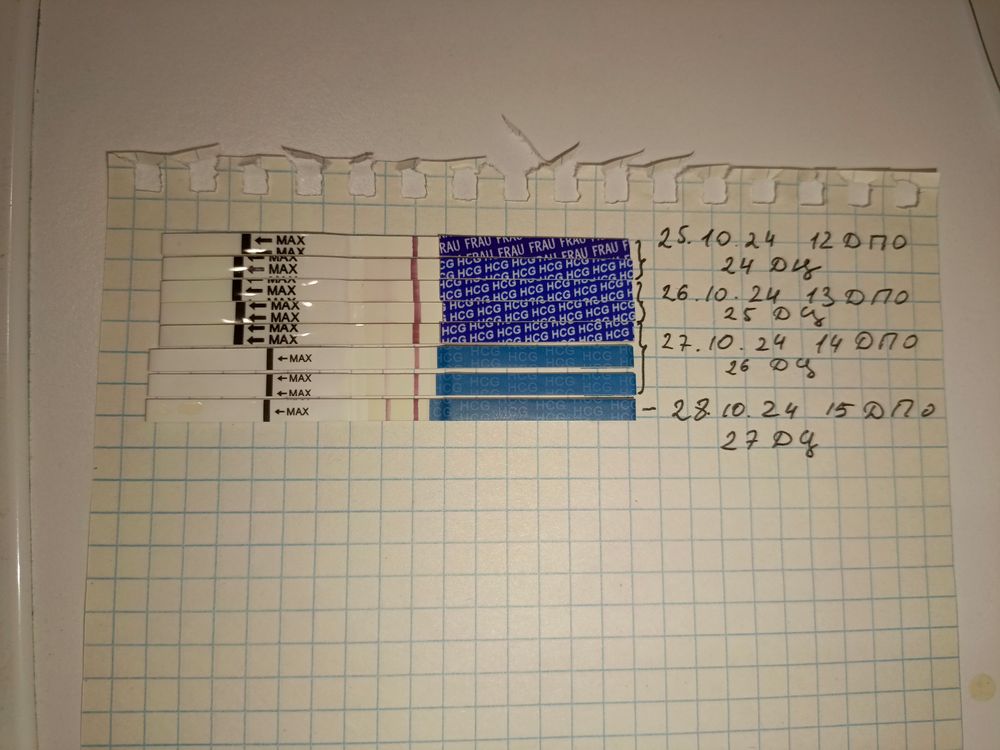 ←MAX RAU FRAU FRAU FRAU FRAU F
25.10.24 12 ДПО
←MAX CG HCG HCG HCG HCG HCG HCG HC
24 ДЦ
←MAX HCG HCG HCG HCG HCG HCG HCG
26.10.24 13 ДПО
←MAX HCG HCG HCG HCG HCG HCG HCG
25 ДЦ
←MAX HCG HCG HCG HCG HCG HCG HCG
27.10.24 14 ДПО
←MAX CG HCG HCG HCG HCG
26 ДЦ
←MAX
←MAX HCG HCG HCG HCG
←MAX HCG HCG HCG HCG
- 28.10.24 15 ДПО
27 ДЦ